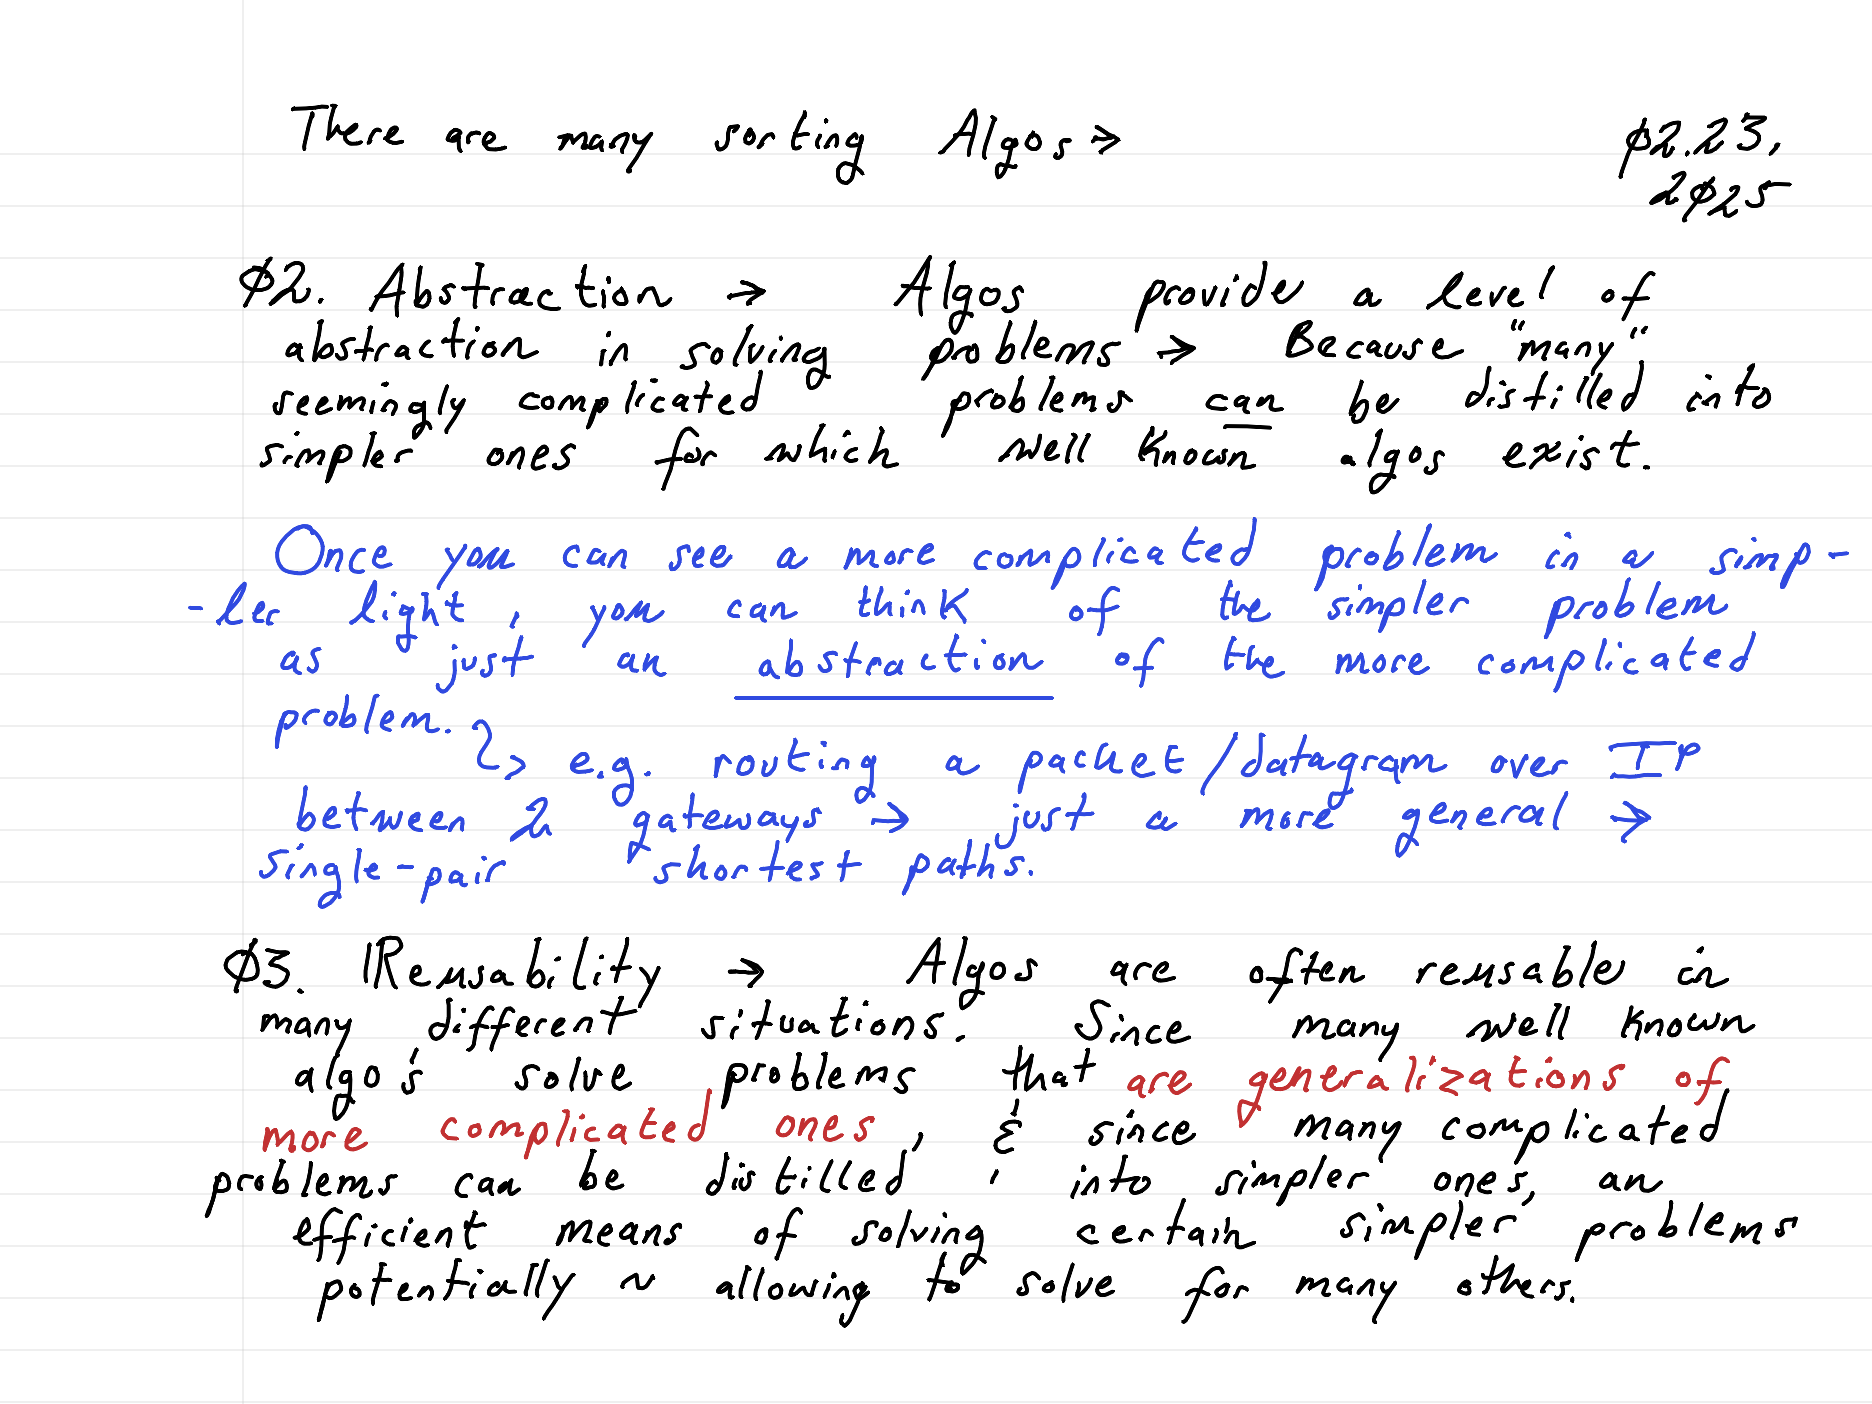 There are many sorting Algos →
02.23,
2025
02. Abstraction → Algos provide a level of
abstraction in solving problems → Because "many"
seemingly complicated problems can be distilled into
simpler ones for which well known algos exist.
Once you can see a more complicated problem in a simp-
-ler light, you can think of the simpler problem
as just an abstraction of the more complicated
problem.
↳ e.g. routing a packet/datagram over IP
between 2 gateways → just a more general →
single-pair shortest paths.
03. Reusability → Algos are often reusable in
many different situations. Since many well known
algo's solve problems that are generalizations of
more complicated ones, & since many complicated
problems can be distilled, into simpler ones, an
efficient means of solving certain simpler problems
potentially ~ allowing to solve for many others.